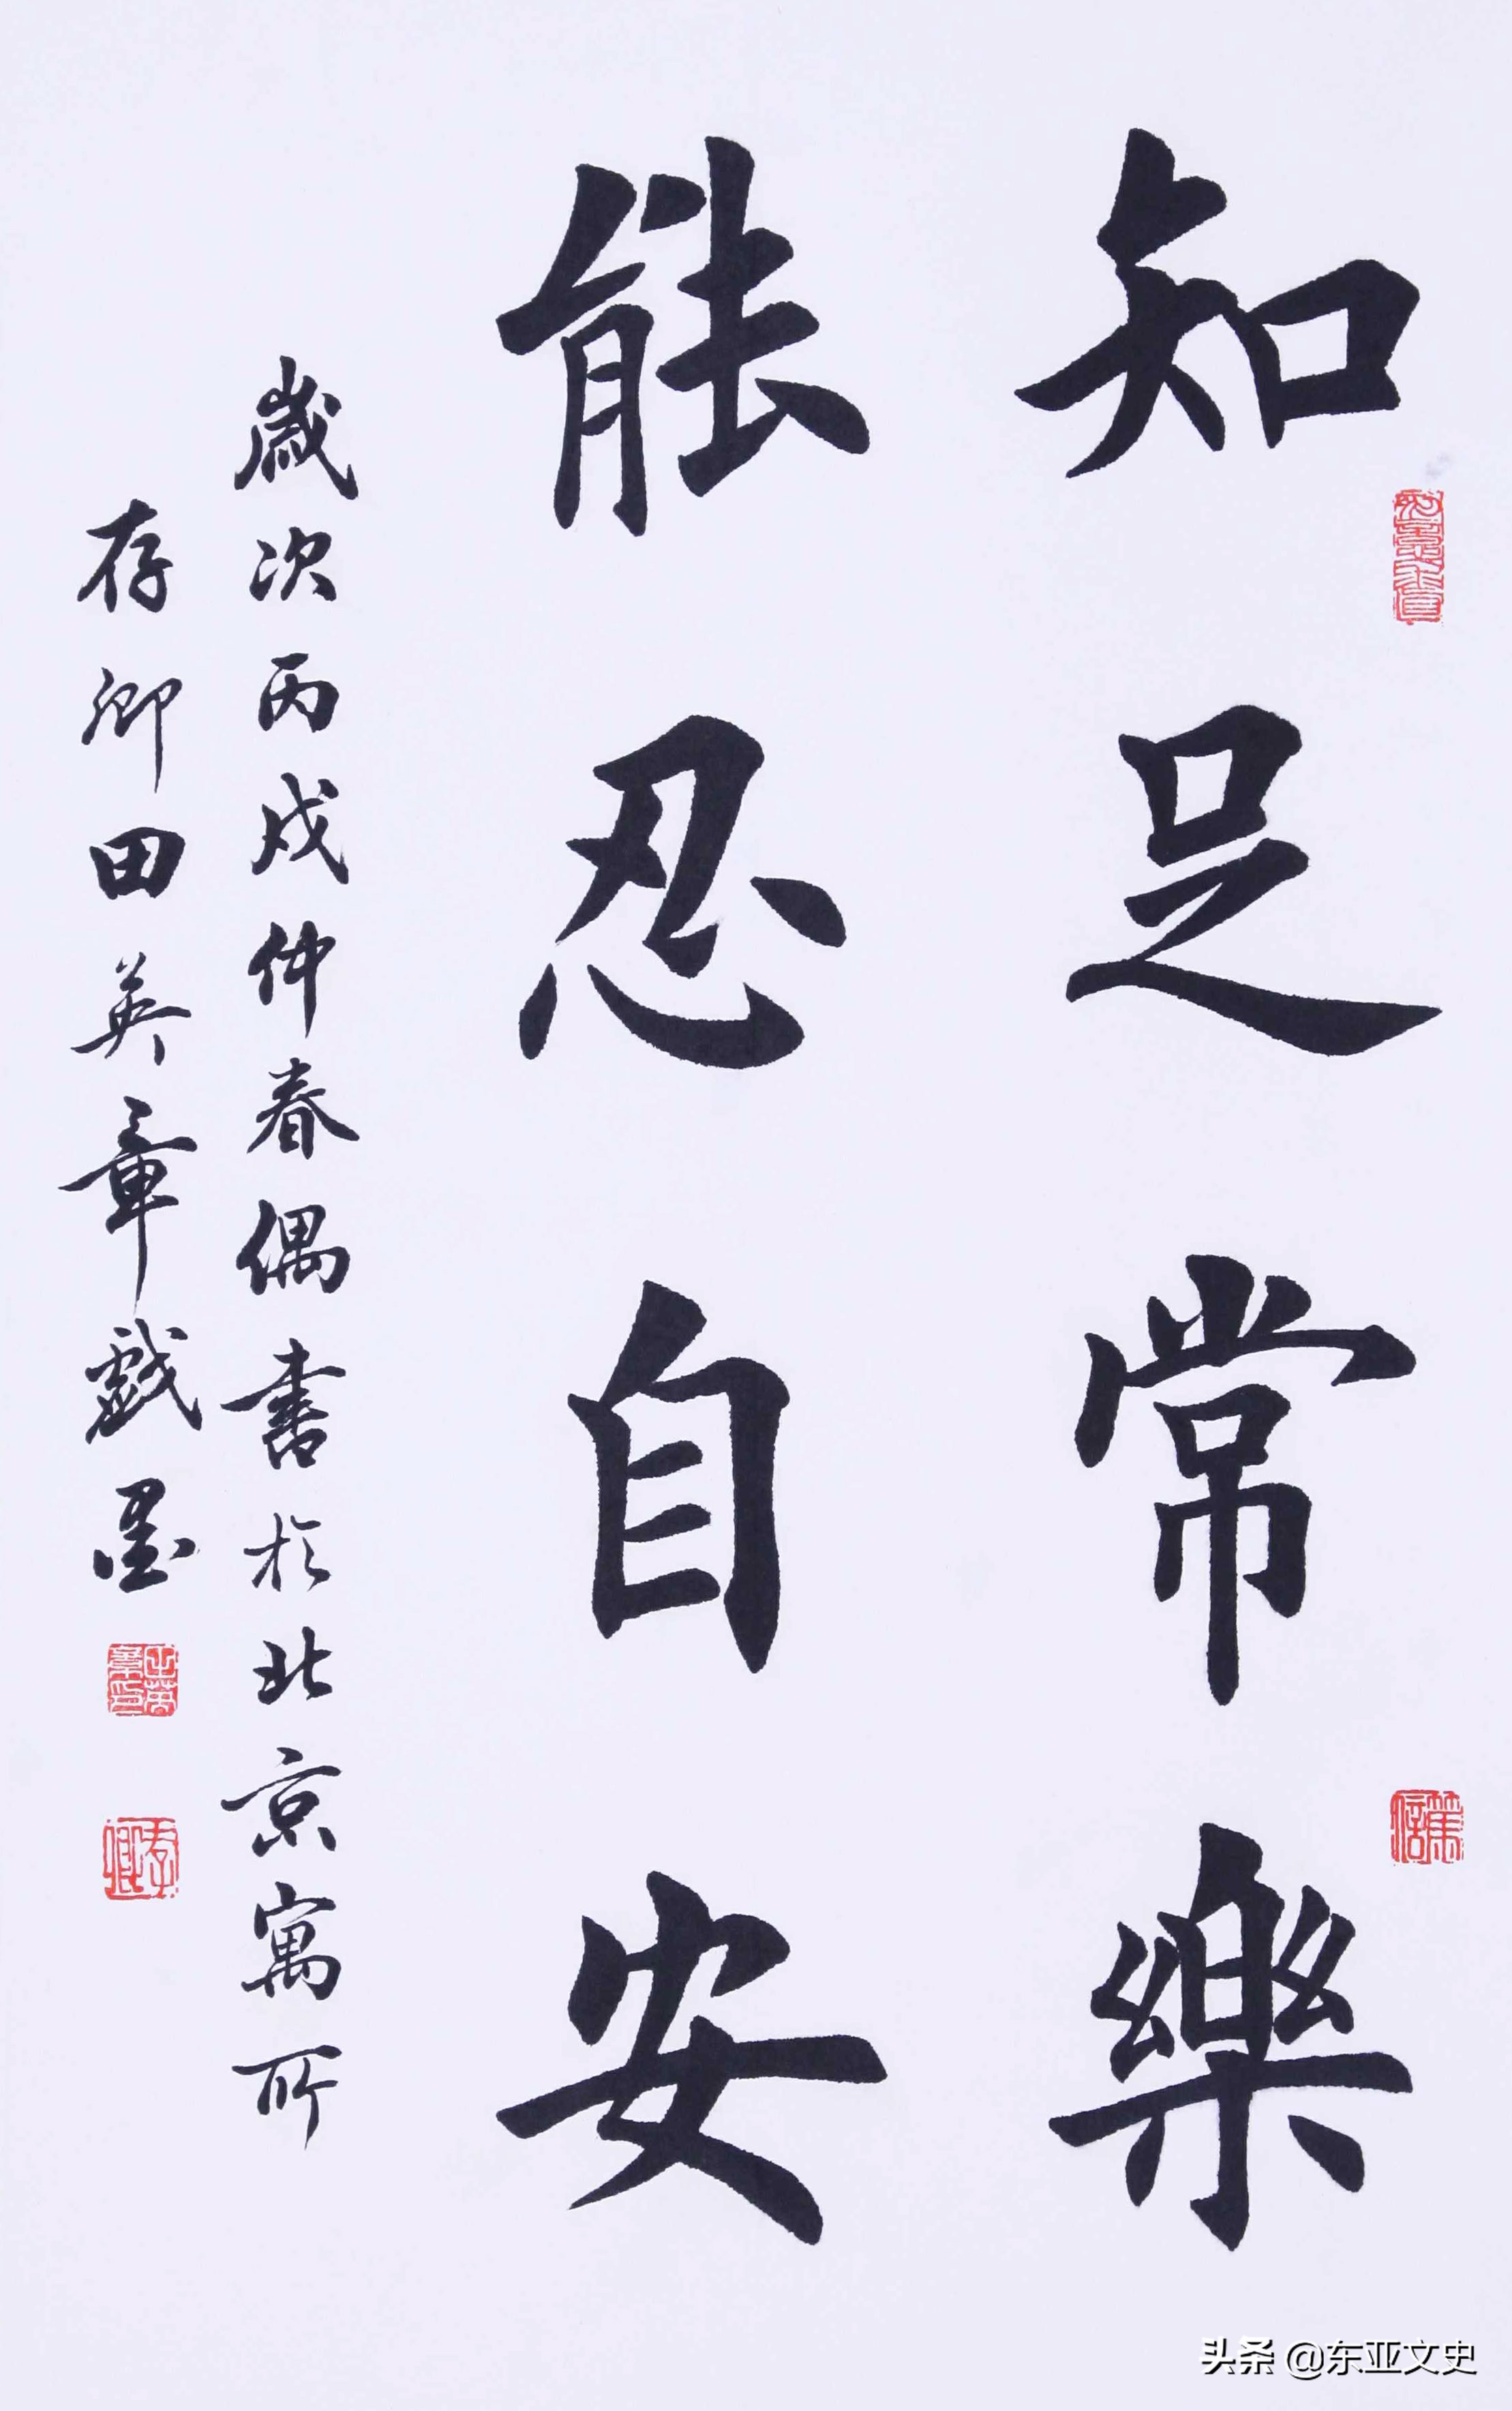 知足常樂
能忍自安
歲次丙戌仲春偶書於北京寓所
存卿田英章戲墨
头条 @东亚文史